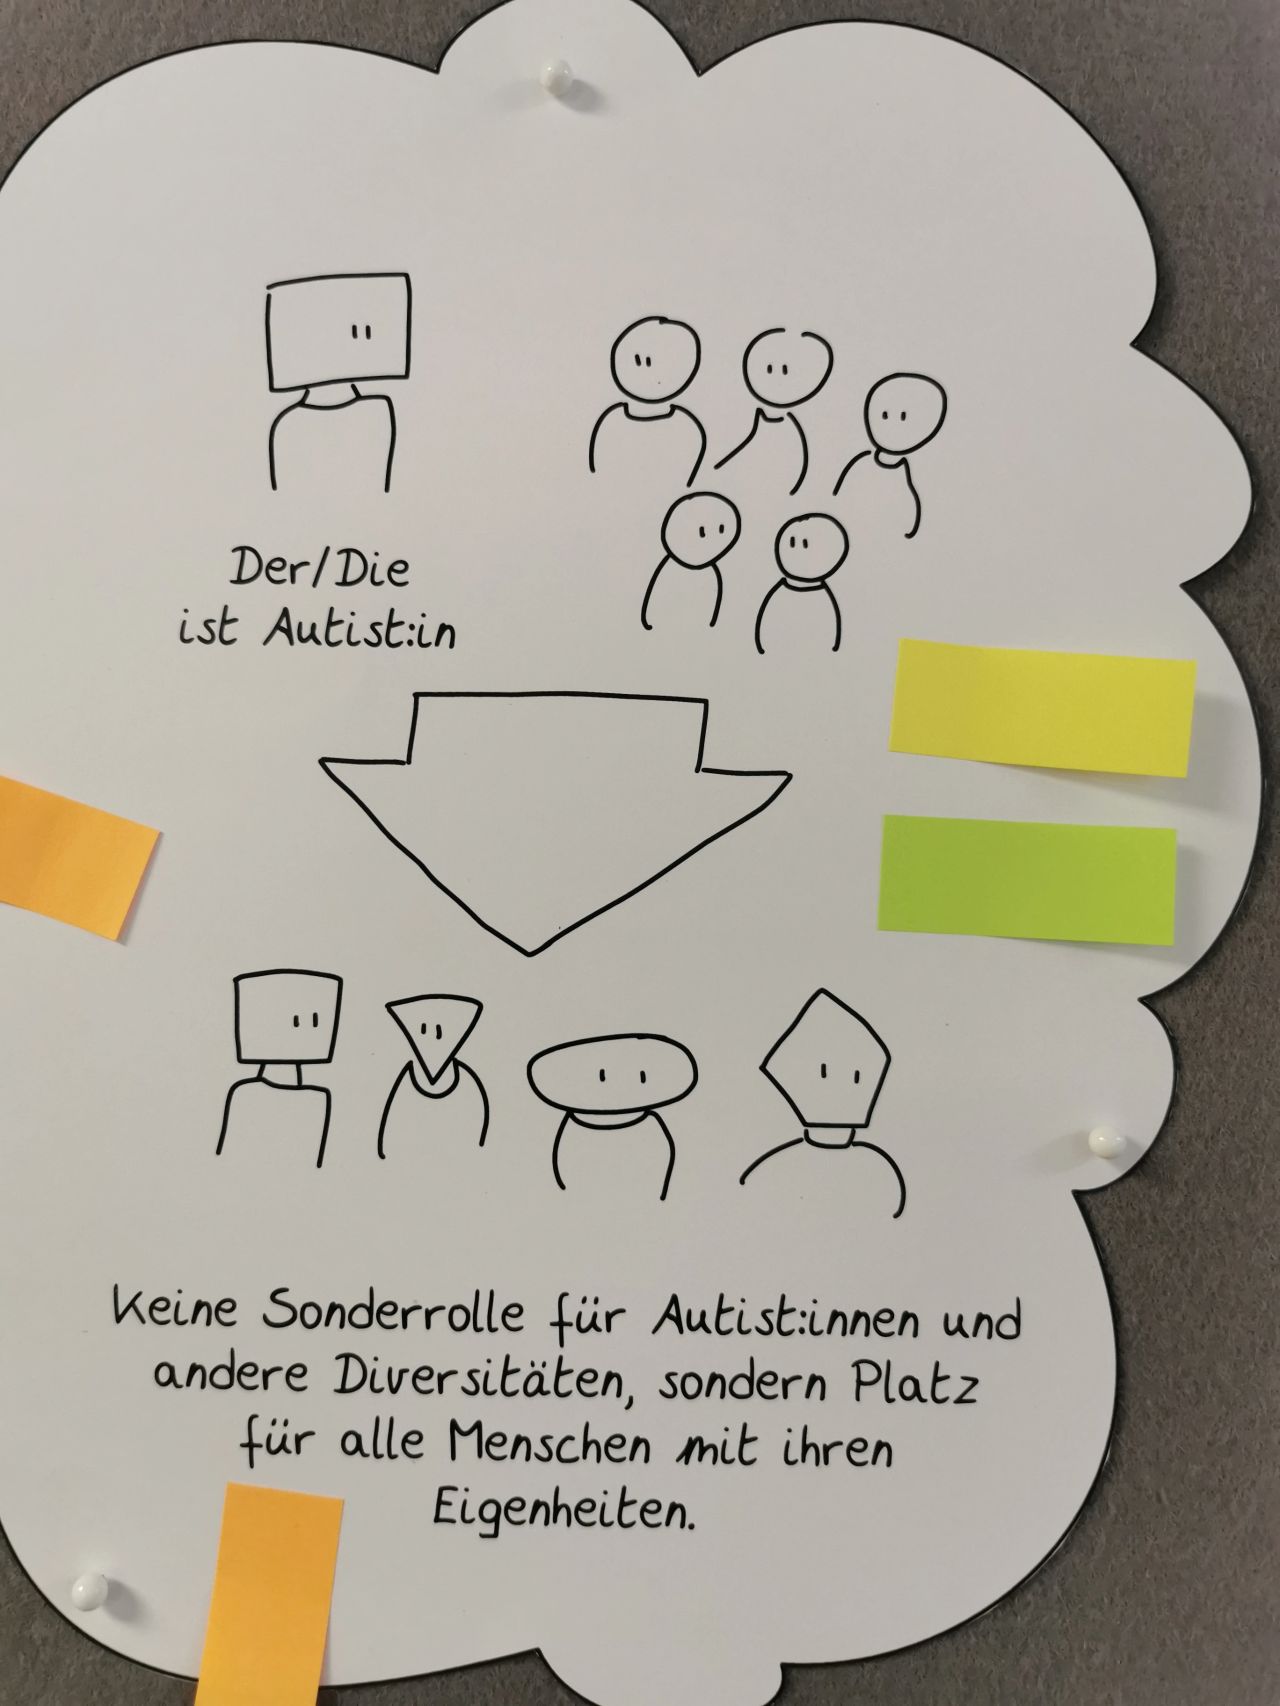 Der/Die
ist Autist:in
Keine Sonderrolle für Autist:innen und
andere Diversitäten, sondern Platz
für alle Menschen mit ihren
Eigenheiten.